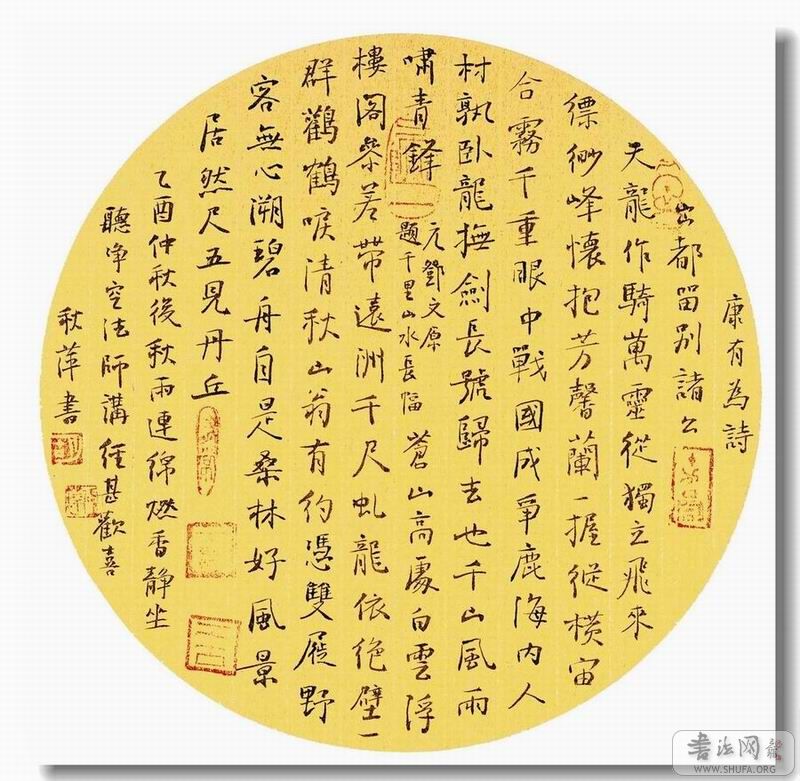 康有為詩
出都留別諸公
天龍作騎萬靈從獨立飛來
縹緲峰懷抱芳馨蘭一握縱橫宙
合霧千重眼中戰國成爭鹿海內人
材孰臥龍撫劍長號歸去也千山風雨
嘯青鋒
元鄧文原
題千里山水長幅
蒼山高處白雲浮
樓閣參差帶遠洲千尺虬龍依絕壁一
群鸛鶴唳清秋山翁有約憑雙屐野
客無心溯碧舟自是桑林好風景
居然尺五見丹丘
乙酉仲秋後秋雨連綿燃香靜坐
聽净空法師講經甚歡喜
秋萍書
書法网
WWW.SHUFA.ORG